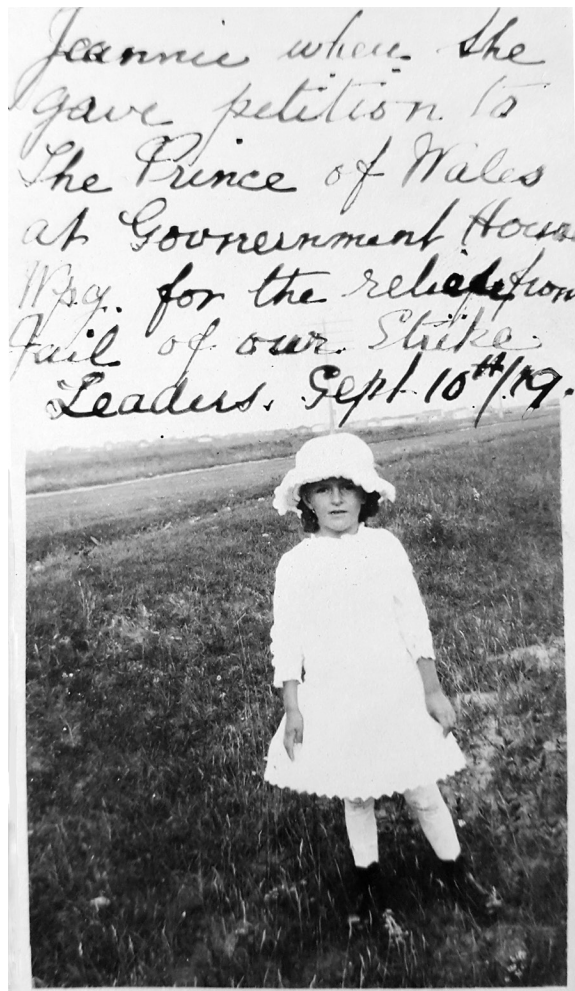 Jeannie when she
gave petition to
The Prince of Wales
at Govnernment House
Wpg. for the relief from
Jail of our Strike
Leaders. Sept 10th/19.